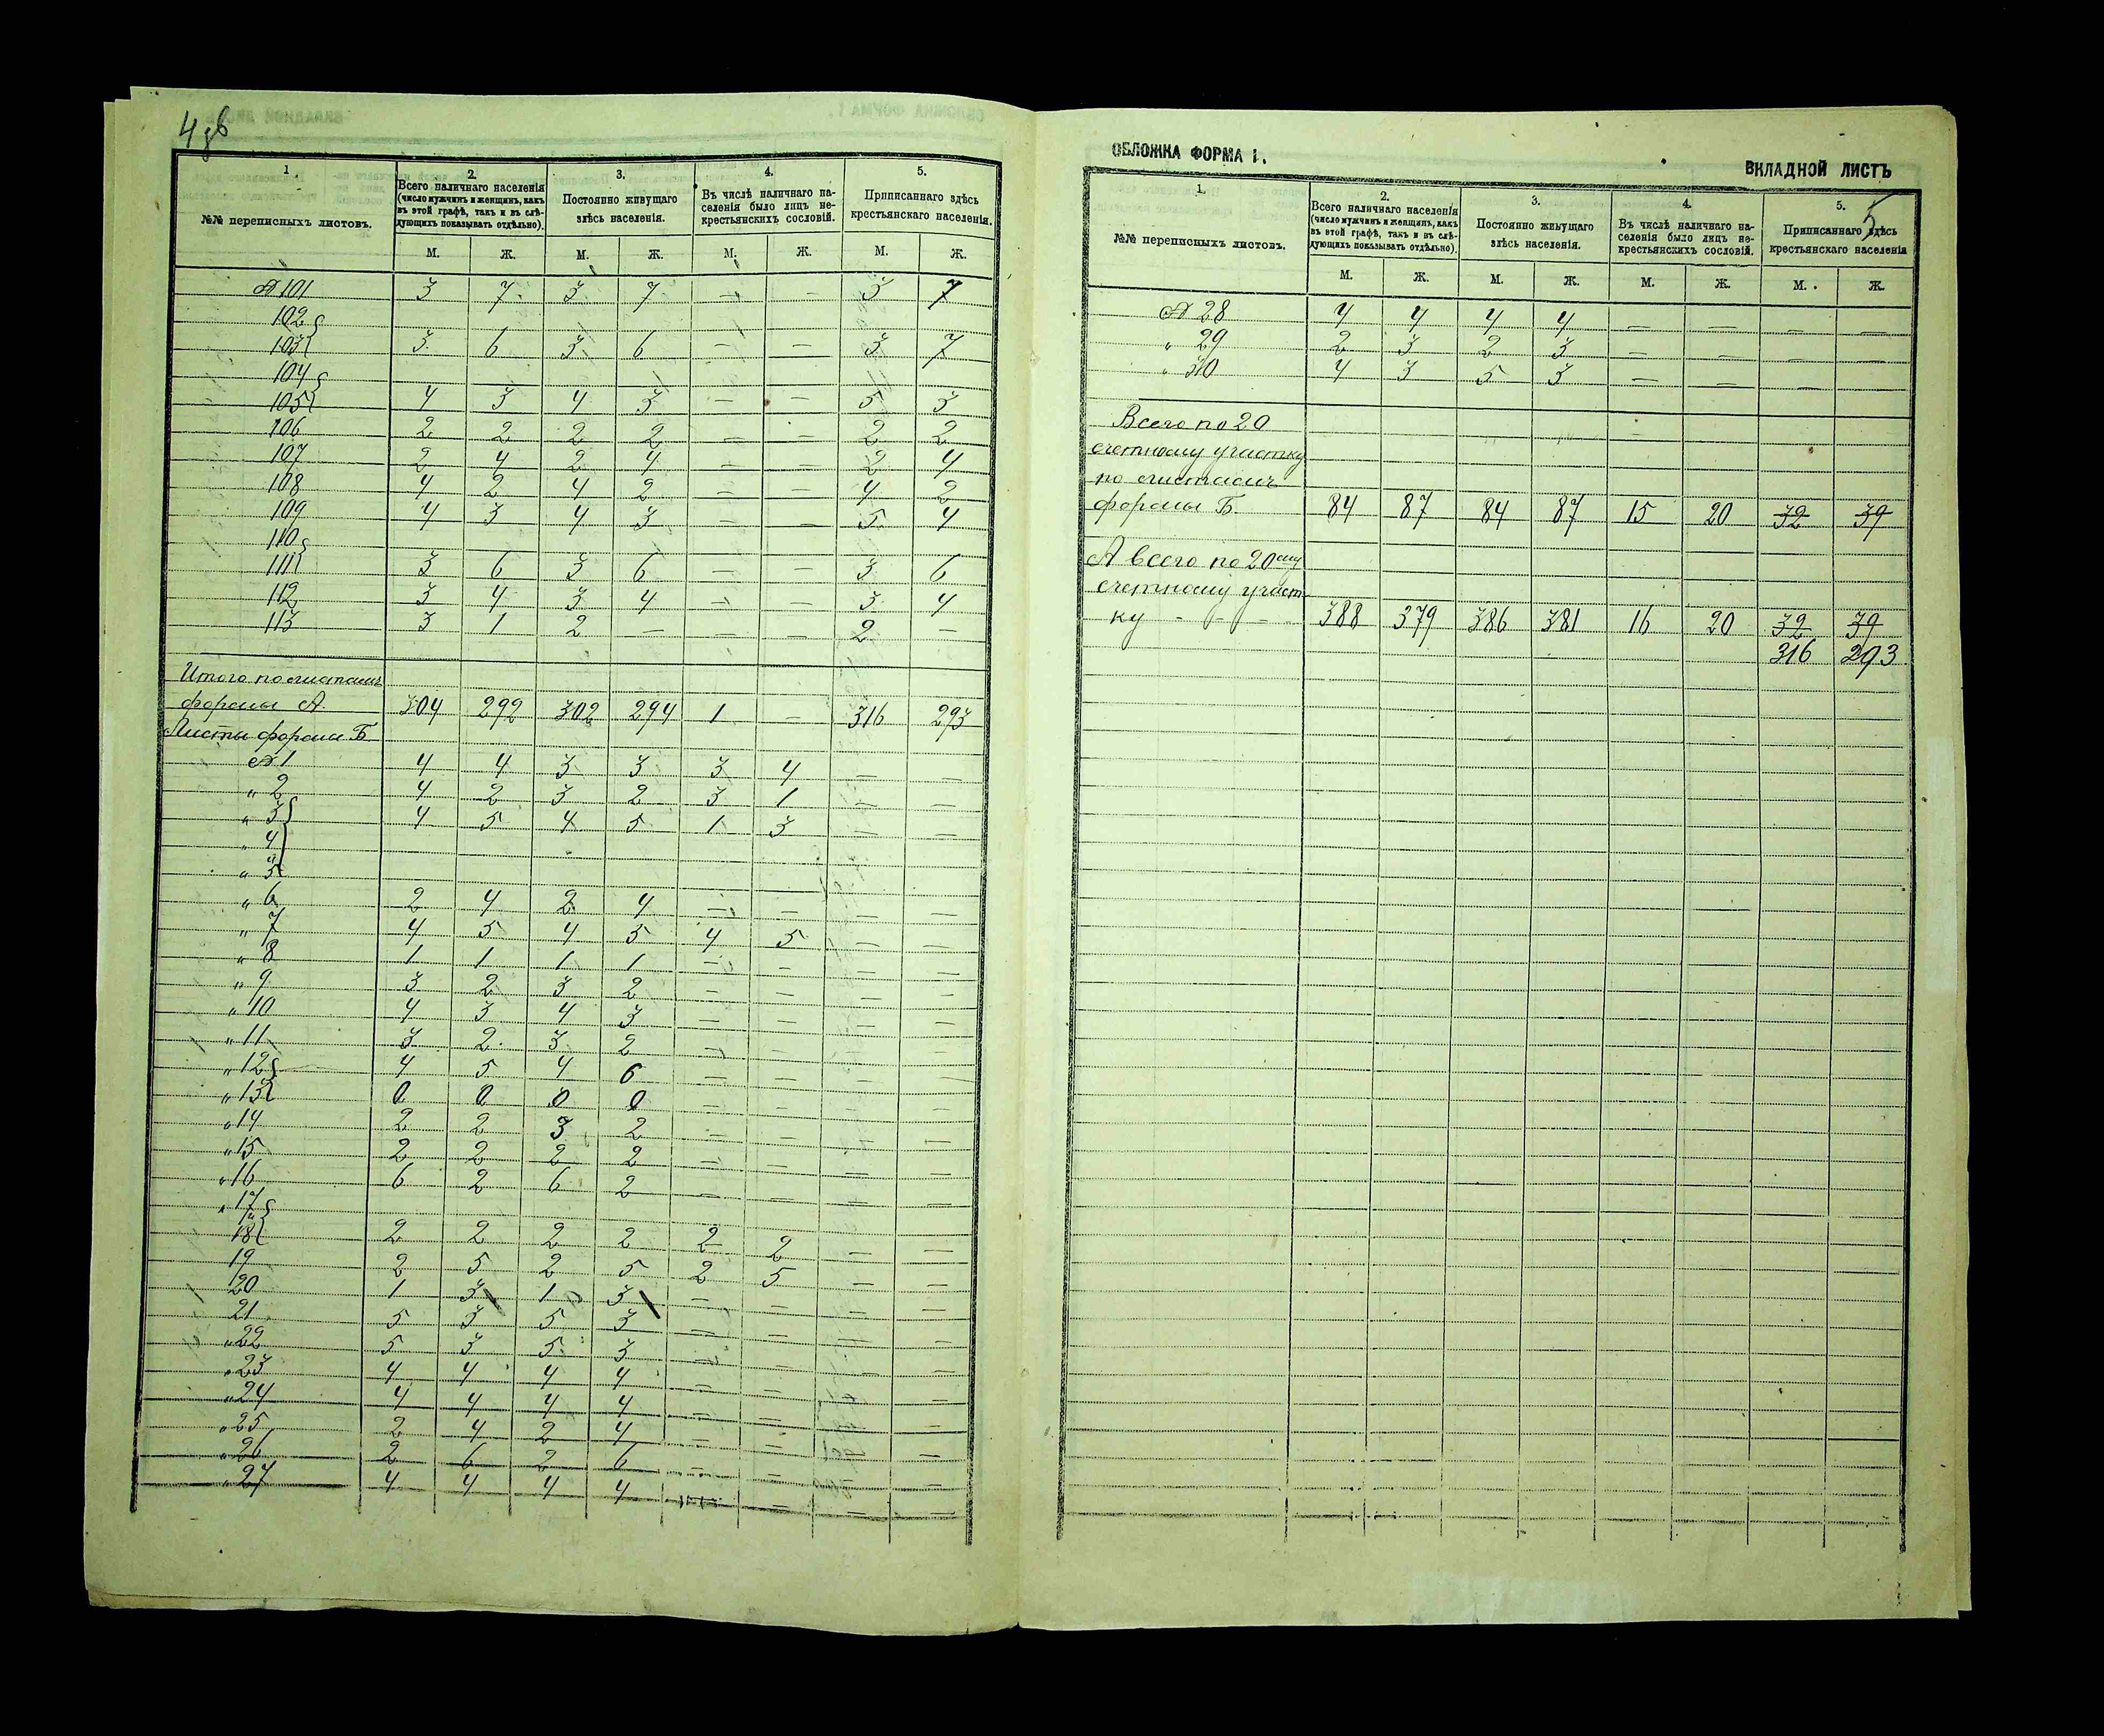 4об
1.
№№ переписныхъ листовъ.
2.
Всего наличнаго населенія
(число мужчинъ и женщинъ, какъ
въ этой графѣ, такъ и въ слѣ-
дующихъ показывать отдѣльно).
3.
Постоянно живущаго
здѣсь населенія.
4.
Въ числѣ наличнаго на-
селенія было лицъ не-
крестьянскихъ сословій.
5.
Приписаннаго здѣсь
крестьянскаго населенія.
М. Ж. М. Ж. М. Ж. М. Ж.
№ 101 3 7 3 7 — — 3 7
102
103 3 6 3 6 — — 3 7
104
105 4 3 4 3 — — 5 3
106 2 2 2 2 — — 2 2
107 2 4 2 4 — — 2 4
108 4 2 4 2 — — 4 2
109 4 3 4 3 — — 5 4
110
111 3 6 3 6 — — 3 6
112 3 4 3 4 — — 3 4
113 3 1 2 — — — 2 —
Итого по листамъ
формы А. 304 292 302 294 1 — 316 293
Листы формы Б
№ 1 4 4 3 3 3 4 — —
" 2 4 2 3 2 3 1 — —
" 3 4 5 4 5 1 3 — —
" 4
" 5
" 6 2 4 2 4 — — — —
" 7 4 5 4 5 4 5 — —
" 8 1 1 1 1 — — — —
" 9 3 2 3 2 — — — —
" 10 4 3 4 3 — — — —
" 11 3 2 3 2 — — — —
" 12 4 5 4 6 — — — —
" 13 0 0 0 0 — — — —
" 14 2 2 3 2 — — — —
" 15 2 2 2 2 — — — —
" 16 6 2 6 2 — — — —
" 17
18 2 2 2 2 2 2 — —
19 2 5 2 5 2 5 — —
20 1 3 1 3 — — — —
21 5 3 5 3 — — — —
" 22 5 3 5 3 — — — —
" 23 4 4 4 4 — — — —
" 24 4 4 4 4 — — — —
" 25 2 4 2 4 — — — —
" 26 2 6 2 6 — — — —
" 27 4 4 4 4 — — — —
ОБЛОЖКА ФОРМА 1.
ВКЛАДНОЙ ЛИСТЪ
5
1.
№№ переписныхъ листовъ.
2.
Всего наличнаго населенія
(число мужчинъ и женщинъ, какъ
въ этой графѣ, такъ и въ слѣ-
дующихъ показывать отдѣльно).
3.
Постоянно живущаго
здѣсь населенія.
4.
Въ числѣ наличнаго на-
селенія было лицъ не-
крестьянскихъ сословій.
5.
Приписаннаго здѣсь
крестьянскаго населенія
М. Ж. М. Ж. М. Ж. М. Ж.
№ 28 4 4 4 4 — — — —
" 29 2 3 2 3 — — — —
" 30 4 3 5 3 — — — —
Всего по 20
счетному участку
по листамъ
формы Б. 84 87 84 87 15 20 32 39
А всего по 20ому
счетному участ-
ку - - - - 388 379 386 381 16 20 32 39
316 293